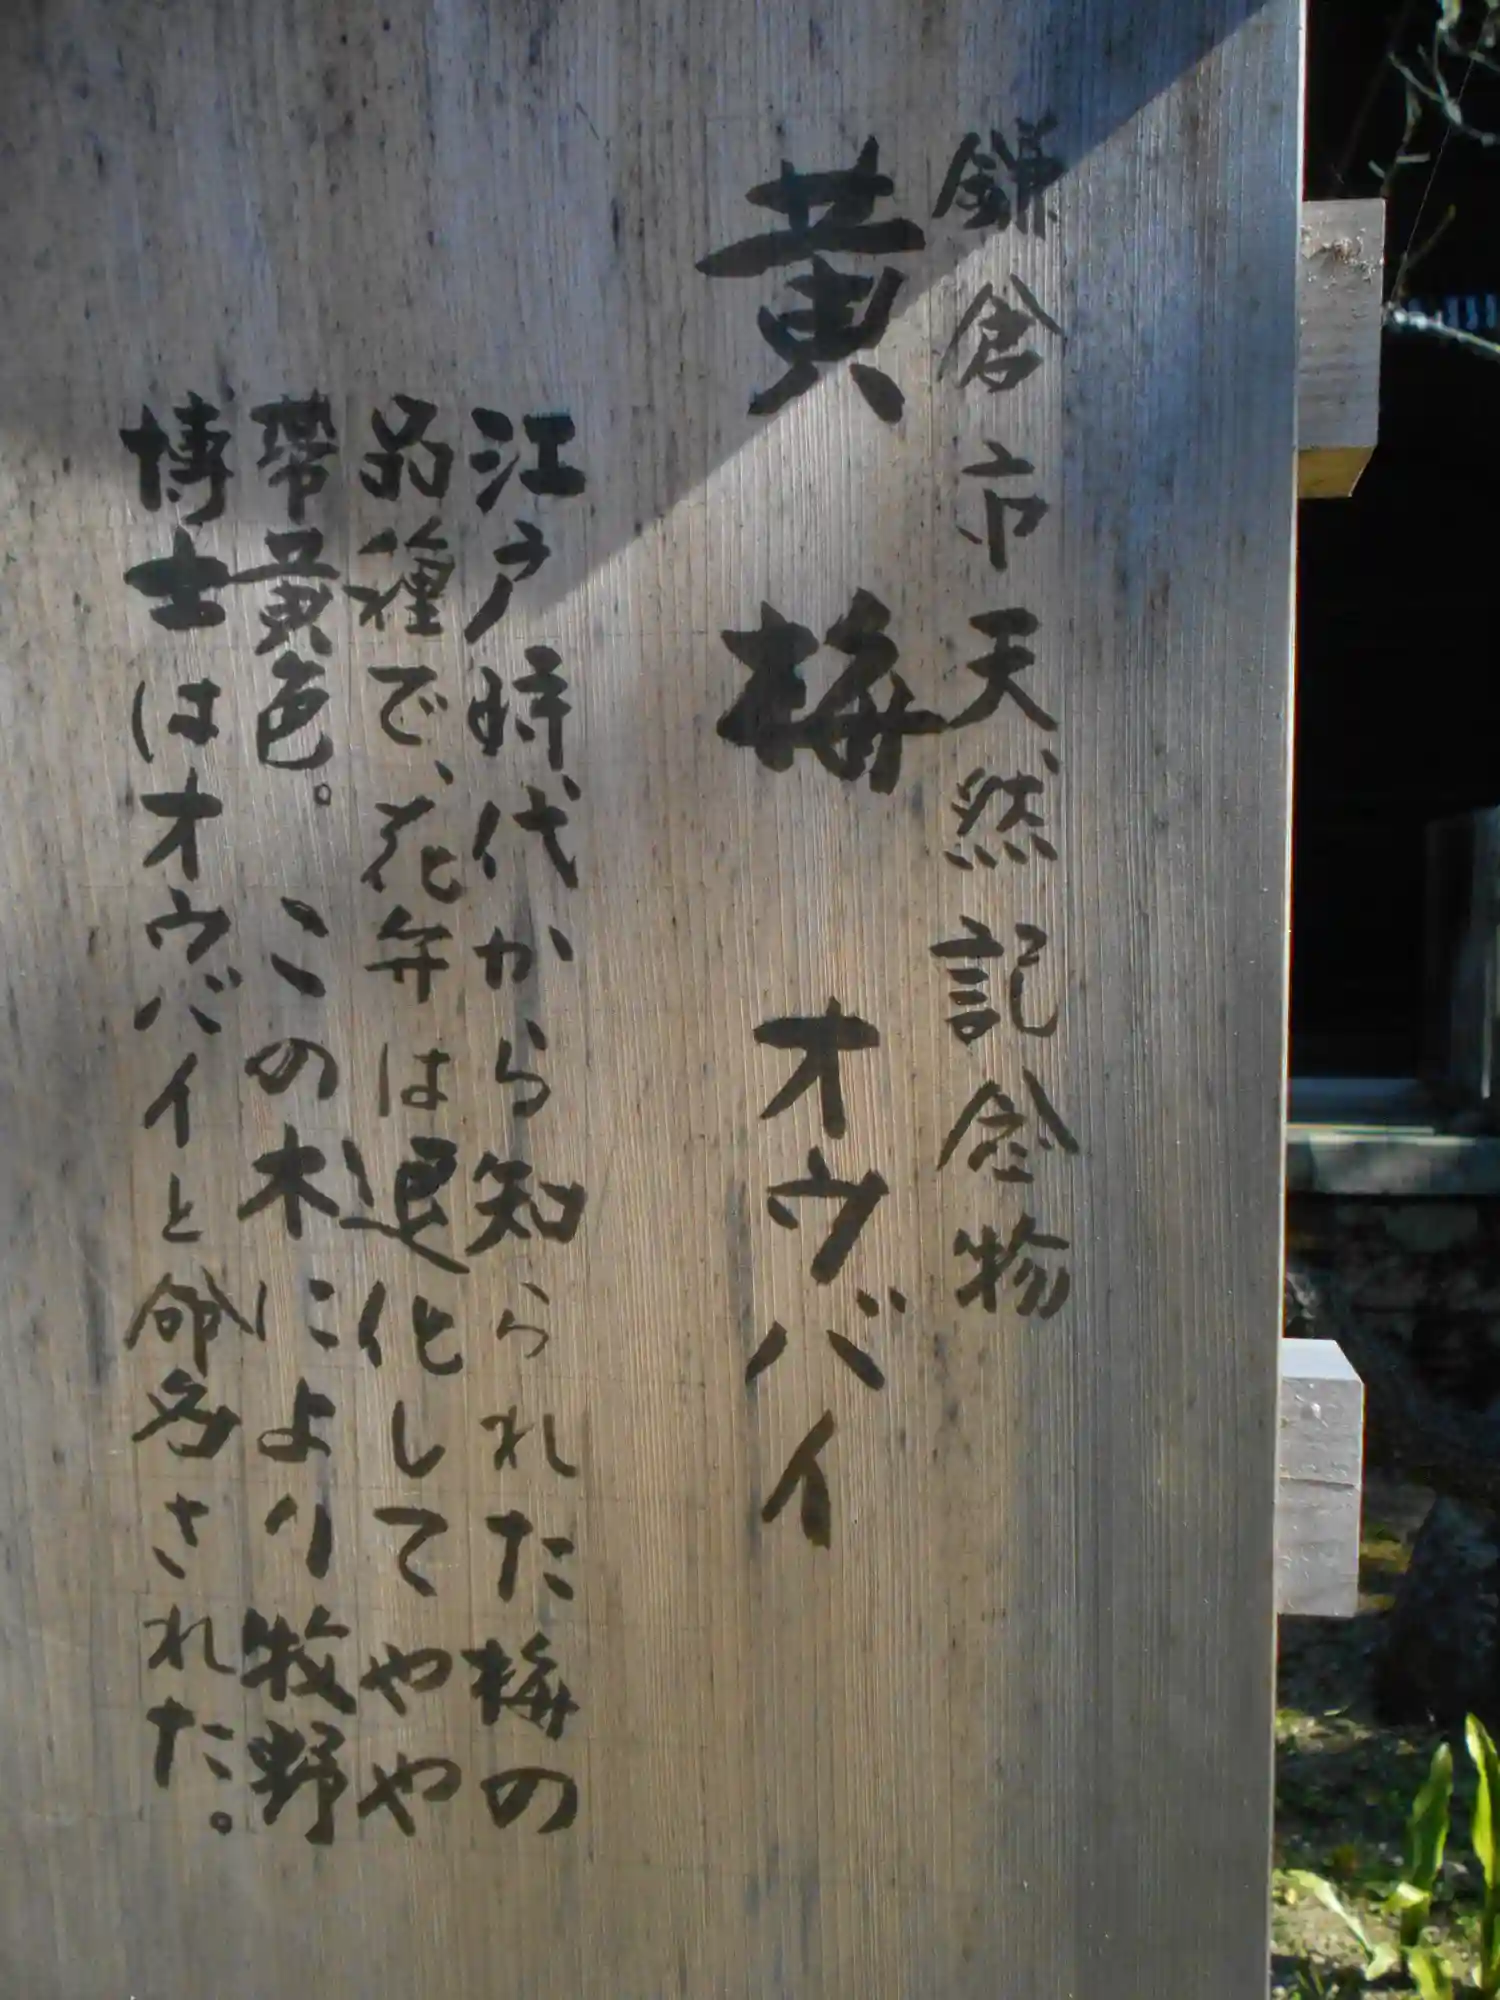 鎌倉市天然記念物
黄梅 オウバイ
江戸時代から知られた梅の
品種で、花弁は退化してやや
帯黄色。この木により牧野
博士はオウバイと命名された。